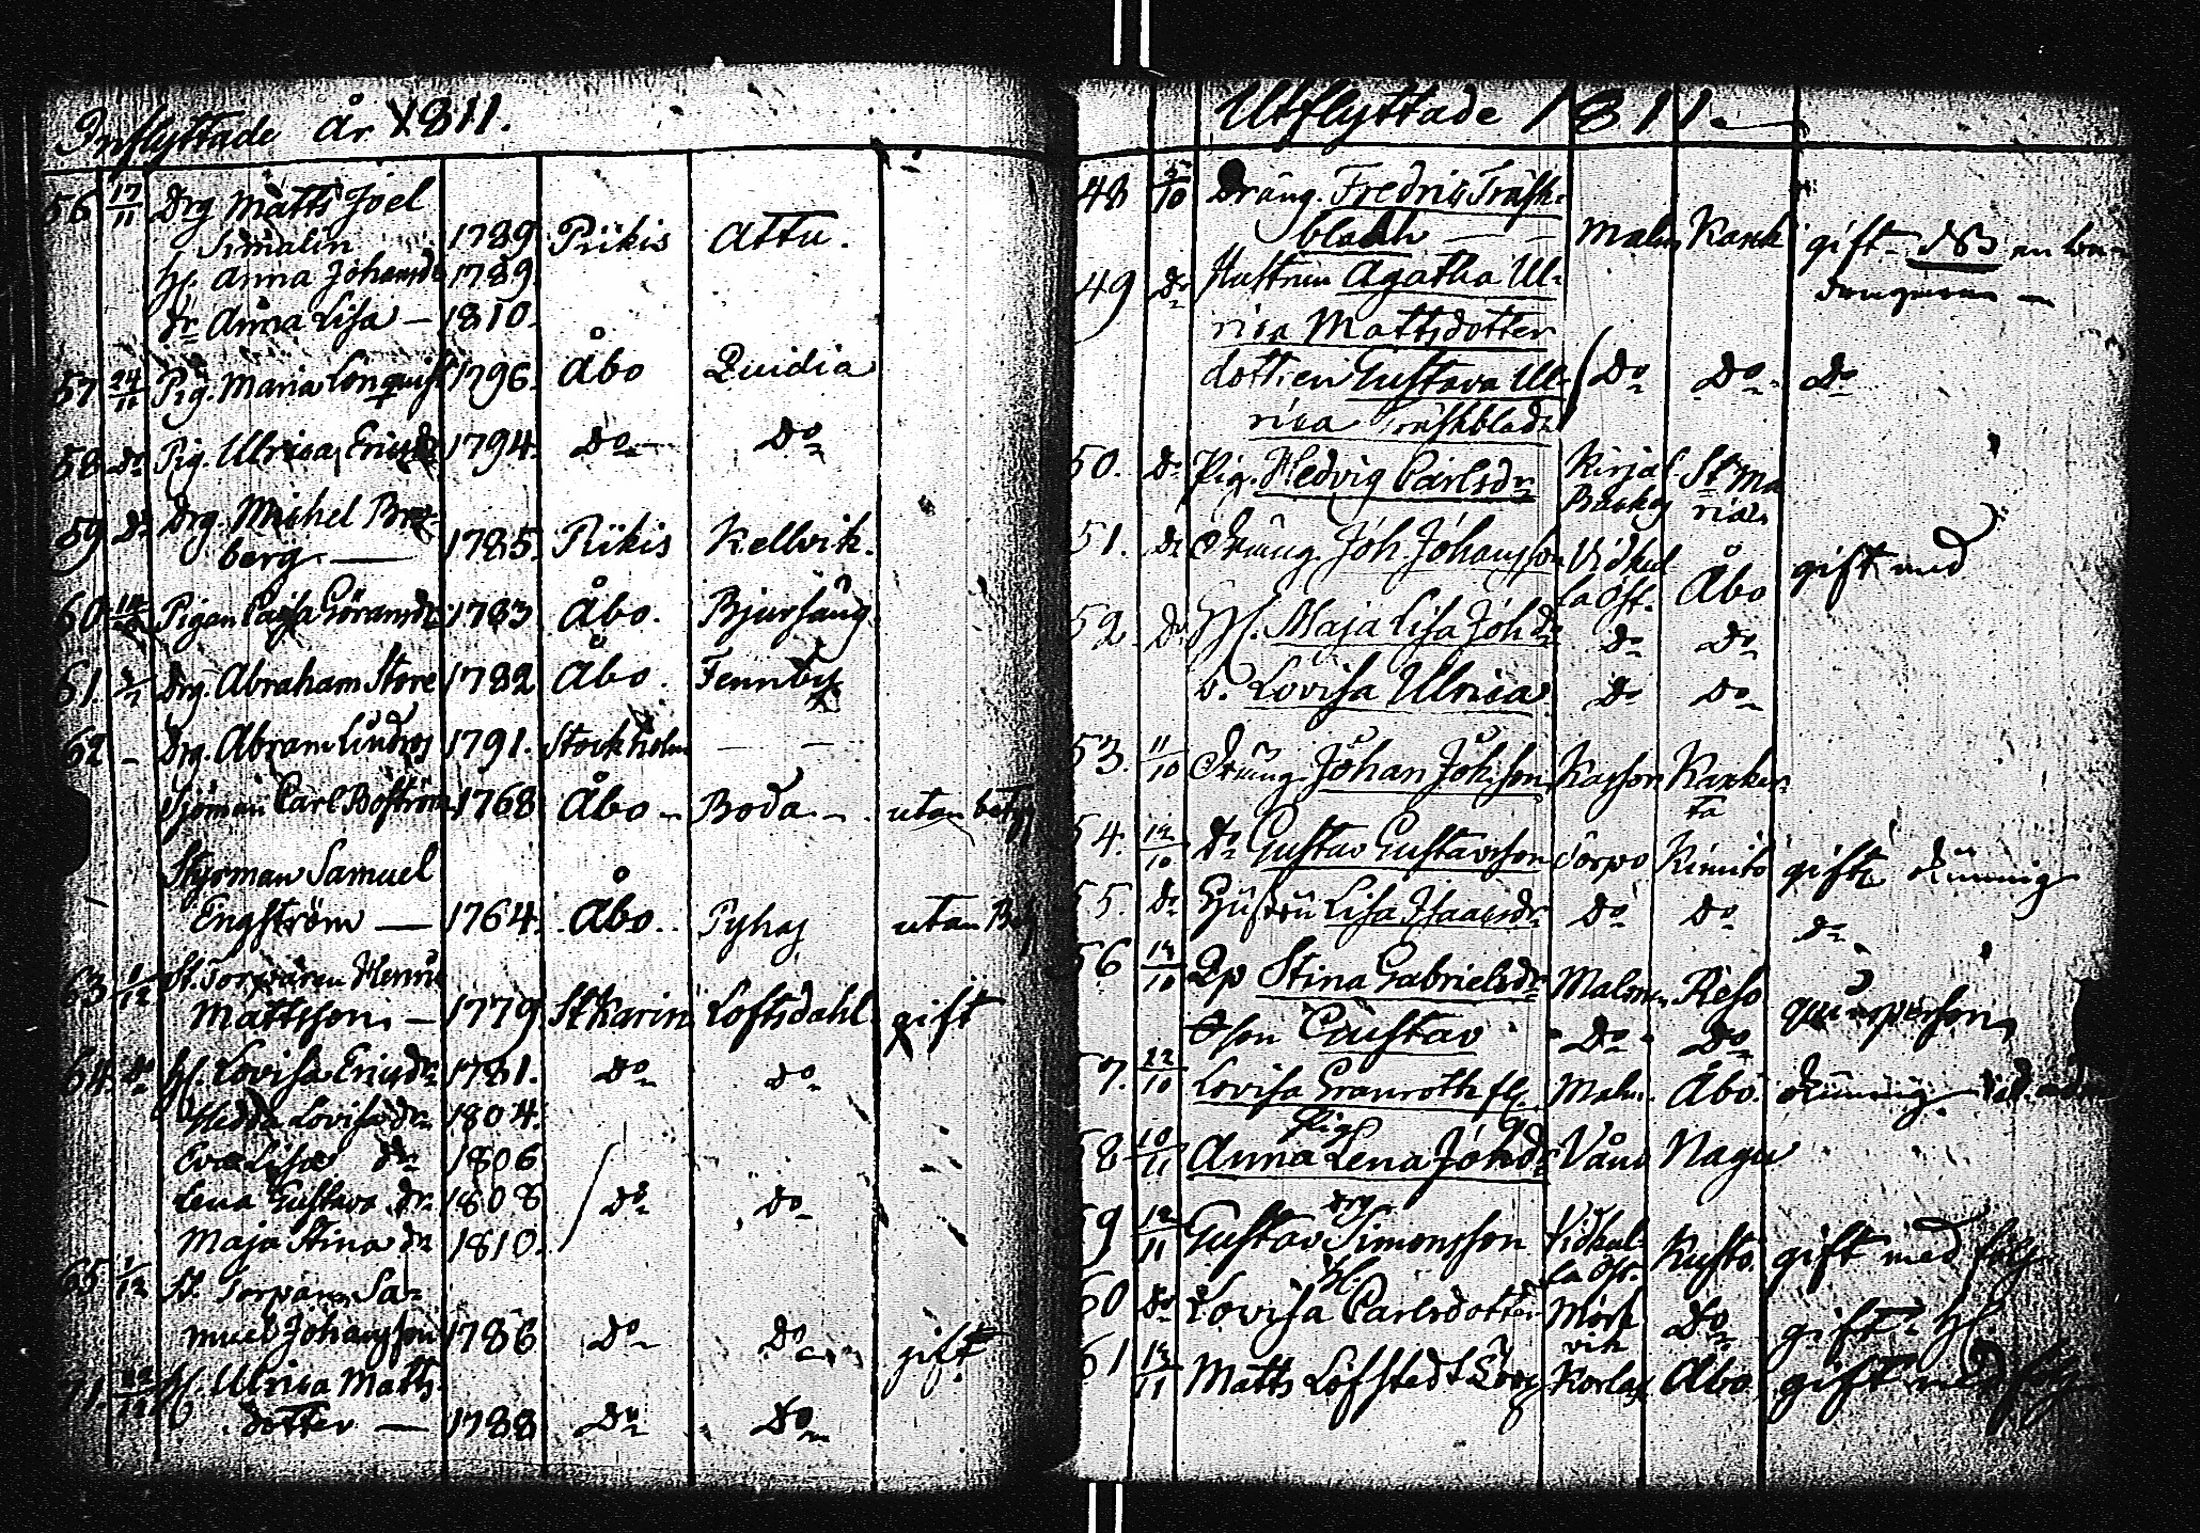 Inflyttade år 1811.
56 17/11 Drg Matts Joel
Simalin 1789 Piikis Attu.
H. Anna Johansdr 1789.
dr Anna Lisa – 1810.
57 24/11 Pig. Maria Lönquist 1796. Åbo Qvidia
58 Do Pig. Ulrica Ericsdr 1794. Do Do
59 Do Drg. Michel Bro-
berg — 1785. Piikis Kellvik.
60 Pigan Caisa Göransdr 1783 Åbo. Bjursäng
61. Drg. Abraham Store 1782 Åbo. Fennby
62 – Drg. Abram Lindros 1791. Stockholm — —
Sjöman Carl Boström 1768 Åbo – Boda – utan
Styrman Samuel
Engström — 1764. Åbo. Pyhaj utan
63 1/12 St. Torparen Henric
Mattsson – 1779 St Karin Loftsdahl gift
64. Do H. Lovisa Ericsdr 1781. Do Do
Hedda Lovisa dr 1804.
Eva Lisa dr 1806
Lena Gustava dr. 1808 Do Do
Maja Stina dr 1810.
65 1/12 St. Torparen Sa-
muel Johansson 1786 Do Do gift
H. Ulrica Matts-
dotter — 1788 Do Do
Utflyttade 1811.
48 Dräng. Fredric Träsk-
bladh — Malm Karis gift
49 Do Hustrun Agatha Ul-
rica Mattsdotter
dottren Gustava Ul- Do Do Do
rica Träskbladh
50. Do Pig. Hedvig Carlsdr Kirjal St Ma
ria
51. Do Dräng. Joh. Johansson Vidkul
la Öst. Åbo gift med
52. Do H. Maja Lisa Joh dr Do Do
d. Lovisa Ulrica Do Do
53. 11/10 Dräng. Johan Johsson
54. 12/10 Do Gustav Gustavsson Sorpo Kimito gift
55. Do Hustru Lisa Isaacsdr Do Do Do
56 Qp Stina Gabrielsdr Malmen Reso qvinsperson
Oson Gustav Do Do
57. 22/10 Lovisa Granroth Malm. Åbo.
Pig
58 10/11 Anna Lena Joh dr Våno Nagu
drg
59 12/11 Gustav Simonsson Vidkul-
la Öst. Kustö. gift med följ
H.
60 Do Lovisa Carlsdotter Mörk
vik Do gift H.
61 13/11 Matts Löfstedt Korlax Åbo gift med